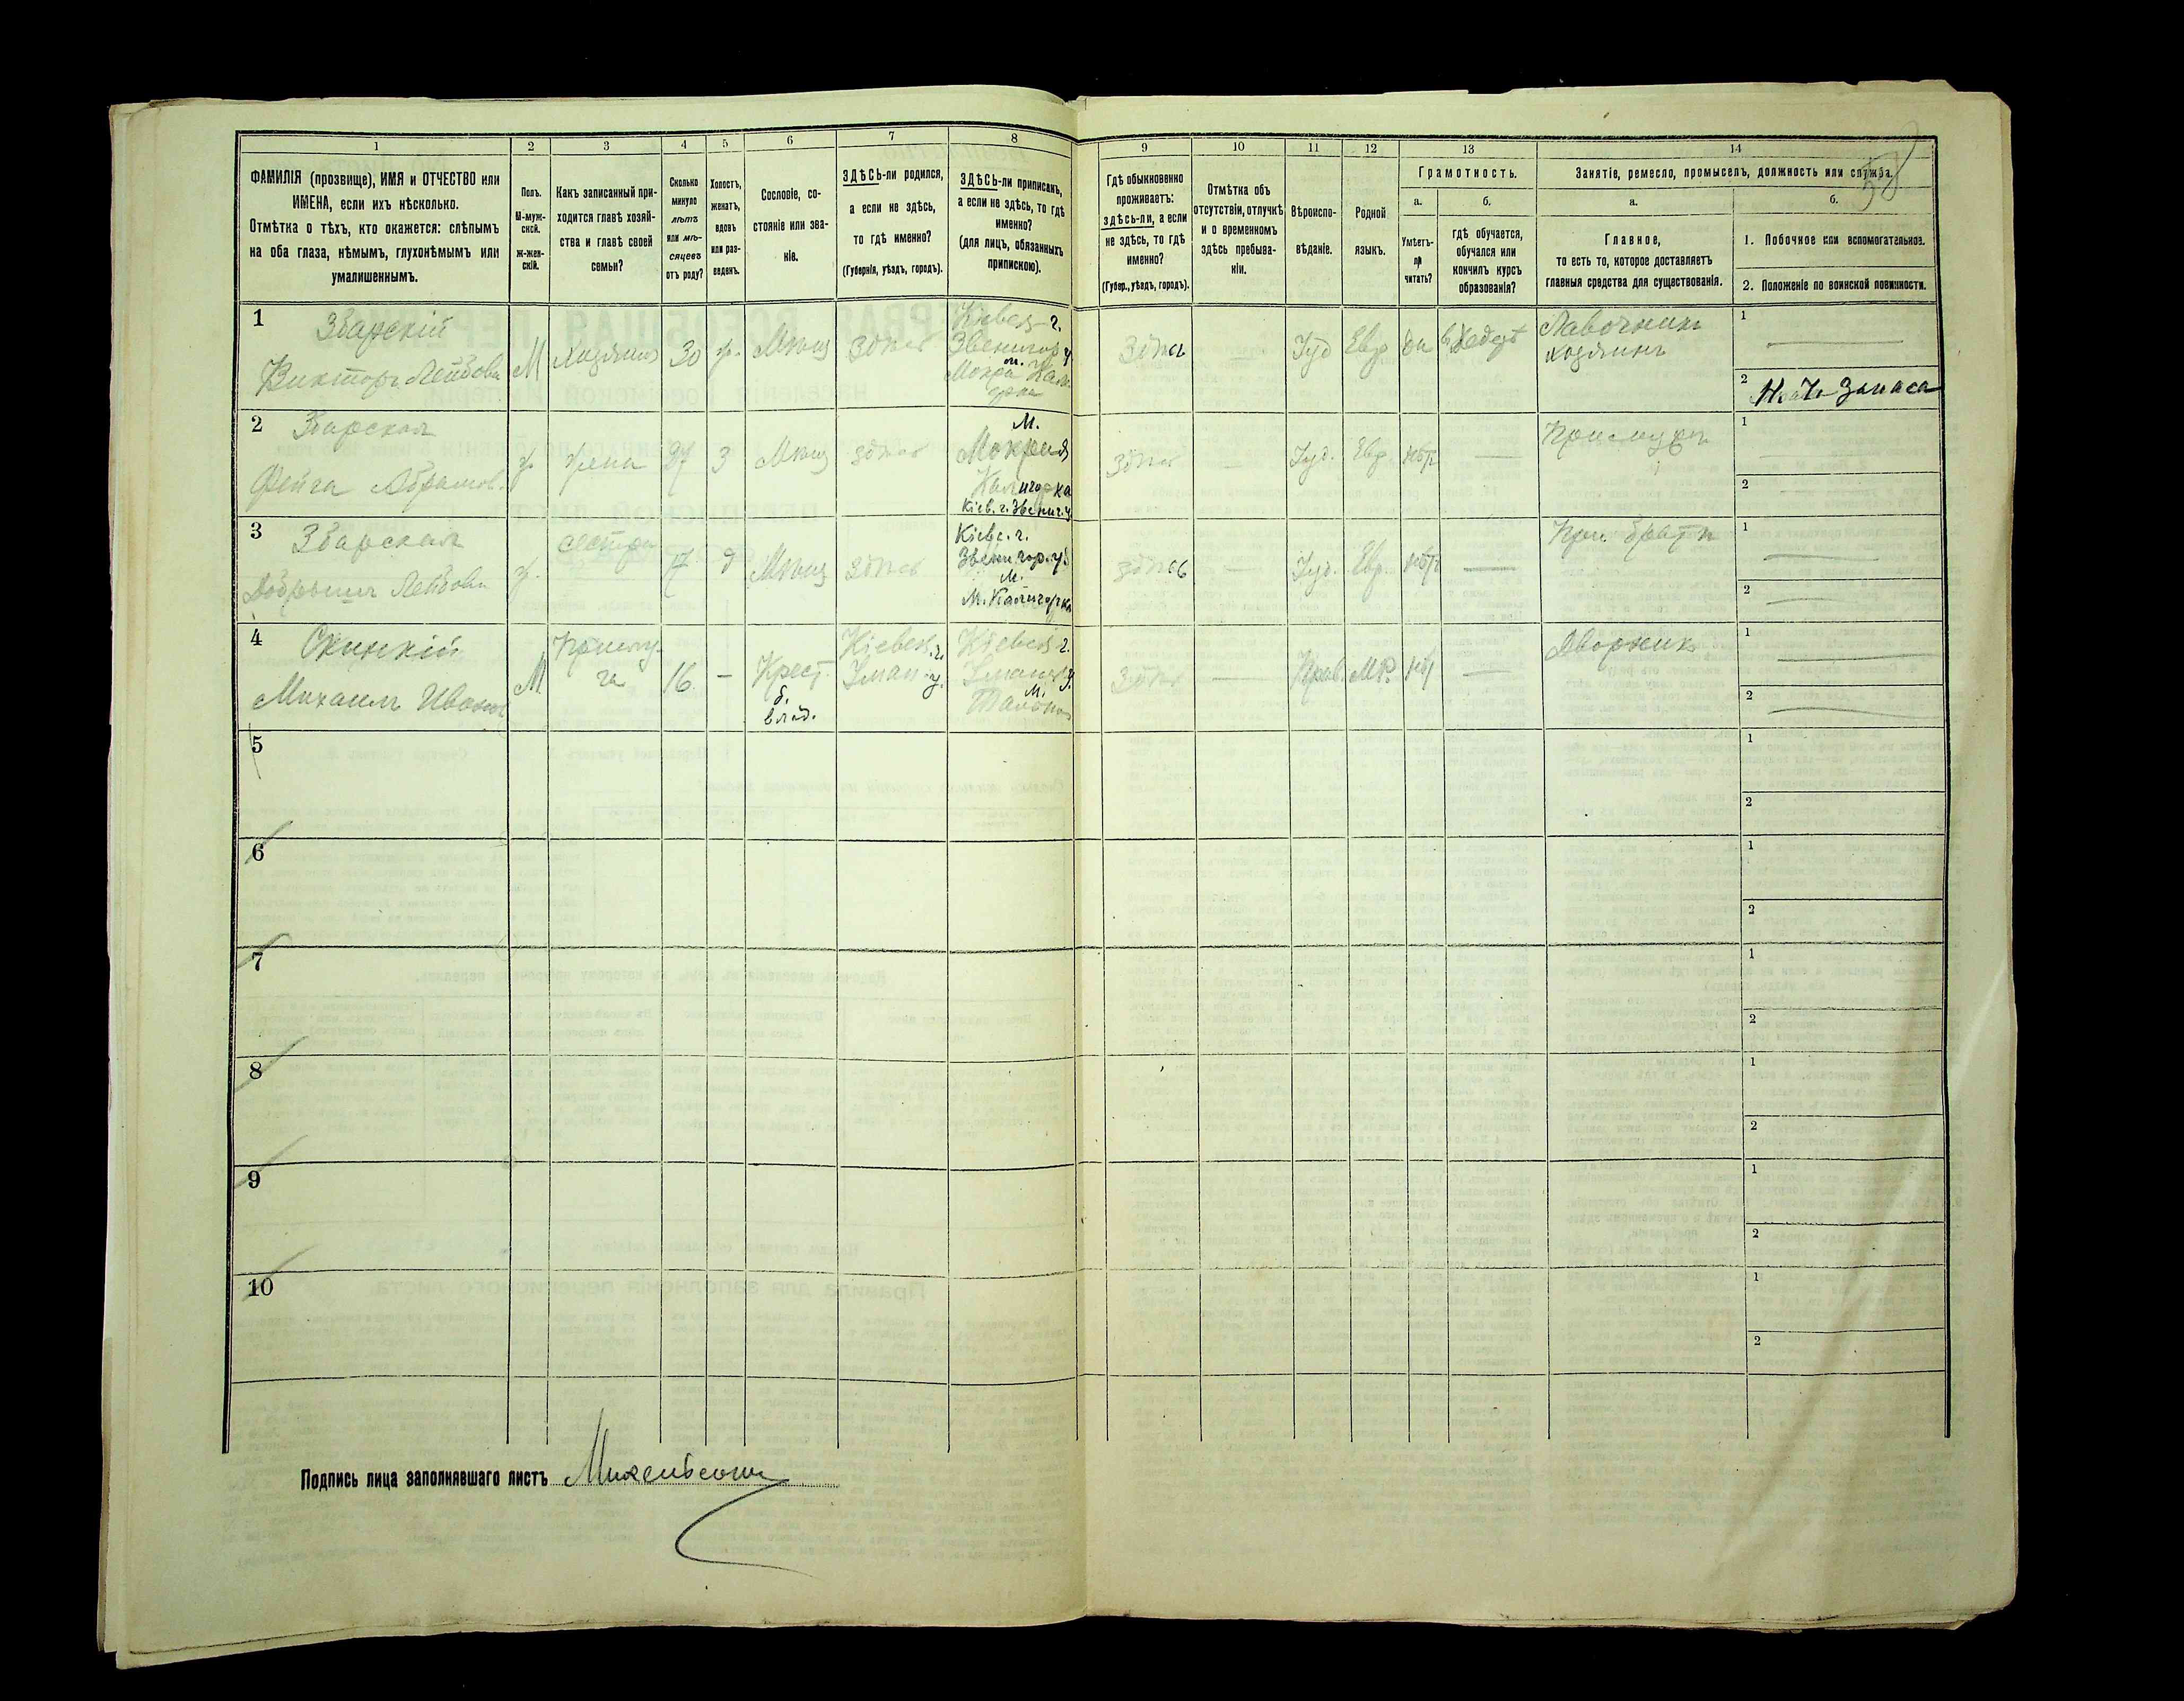 1 2 3 4 5 6 7 8 9 10 11 12 13 14
ФАМИЛІЯ (прозвище), ИМЯ и ОТЧЕСТВО или
ИМЕНА, если ихъ нѣсколько.
Отмѣтка о тѣхъ, кто окажется: слѣпымъ
на оба глаза, нѣмымъ, глухонѣмымъ или
умалишеннымъ.
Полъ.
М-муж-
ской.
ж-жен-
скій.
Какъ записанный при-
ходится главѣ хозяй-
ства и главѣ своей
семьи?
Сколько
минуло
лѣтъ
или мѣ-
сяцевъ
отъ роду?
Холостъ,
женатъ,
вдовъ
или раз-
веденъ.
Сословіе, со-
стояніе или зва-
ніе.
ЗДѢСЬ-ли родился,
а если не здѣсь,
то гдѣ именно?
(Губернія, уѣздъ, городъ).
ЗДѢСЬ-ли приписанъ,
а если не здѣсь, то гдѣ
именно?
(для лицъ, обязанныхъ
припискою).
Гдѣ обыкновенно
проживаетъ:
здѣсь-ли, а если
не здѣсь, то гдѣ
именно?
(Губер., уѣздъ, городъ).
Отмѣтка объ
отсутствіи, отлучкѣ
и о временномъ
здѣсь пребыва-
ніи.
Вѣроиспо-
вѣданіе.
Родной
языкъ.
Грамотность.
а.
Умѣетъ-
ли
читать?
б.
гдѣ обучается,
обучался или
кончилъ курсъ
образованія?
Занятіе, ремесло, промыселъ, должность или служба.
58
а.
Главное,
то есть то, которое доставляетъ
главныя средства для существованія.
б.
1. Побочное или вспомогательное.
2. Положеніе по воинской повинности.
1
Збарскій
Викторъ Лейбовъ
М
хозяинъ
30
ж.
Мѣщ
здѣсь
Кіевск. г.
Звенигор у
м.
Мокра Кали
горка
здѣсь
Іуд
Евр.
да
въ Хедерѣ
Лавочникъ
хозяинъ
1
2
Н. Ч. Запаса
2
Збарская
Фейга Абрамов.
ж
жена
27
З
Мѣщ
здѣсь
М.
Мокрая
Калигорка
Кіев. г. Звениг. у.
здѣсь
—
Іуд.
Евр.
нѣтъ
—
1
2
3
Збарская
Лейбовна
ж.
сестра
17
д
Мѣщ
здѣсь
Кіевс. г.
Звенигор. у.
м.
М. Калигорка
здѣсь
—
Іуд.
Евр.
нѣтъ
—
При братѣ
1
2
4
Михаилъ Ивановъ
М
Прислу-
га
16
–
Крест.
б.
влад.
Кіевск. г.
Уман. у.
Кіевск. г.
Уманск. у.
м.
Тальное
здѣсь
—
Прав.
МР.
нѣт
—
Дворникъ
1
2
5
1
2
6
1
2
7
1
2
8
1
2
9
1
2
10
1
2
Подпись лица заполнявшаго листъ